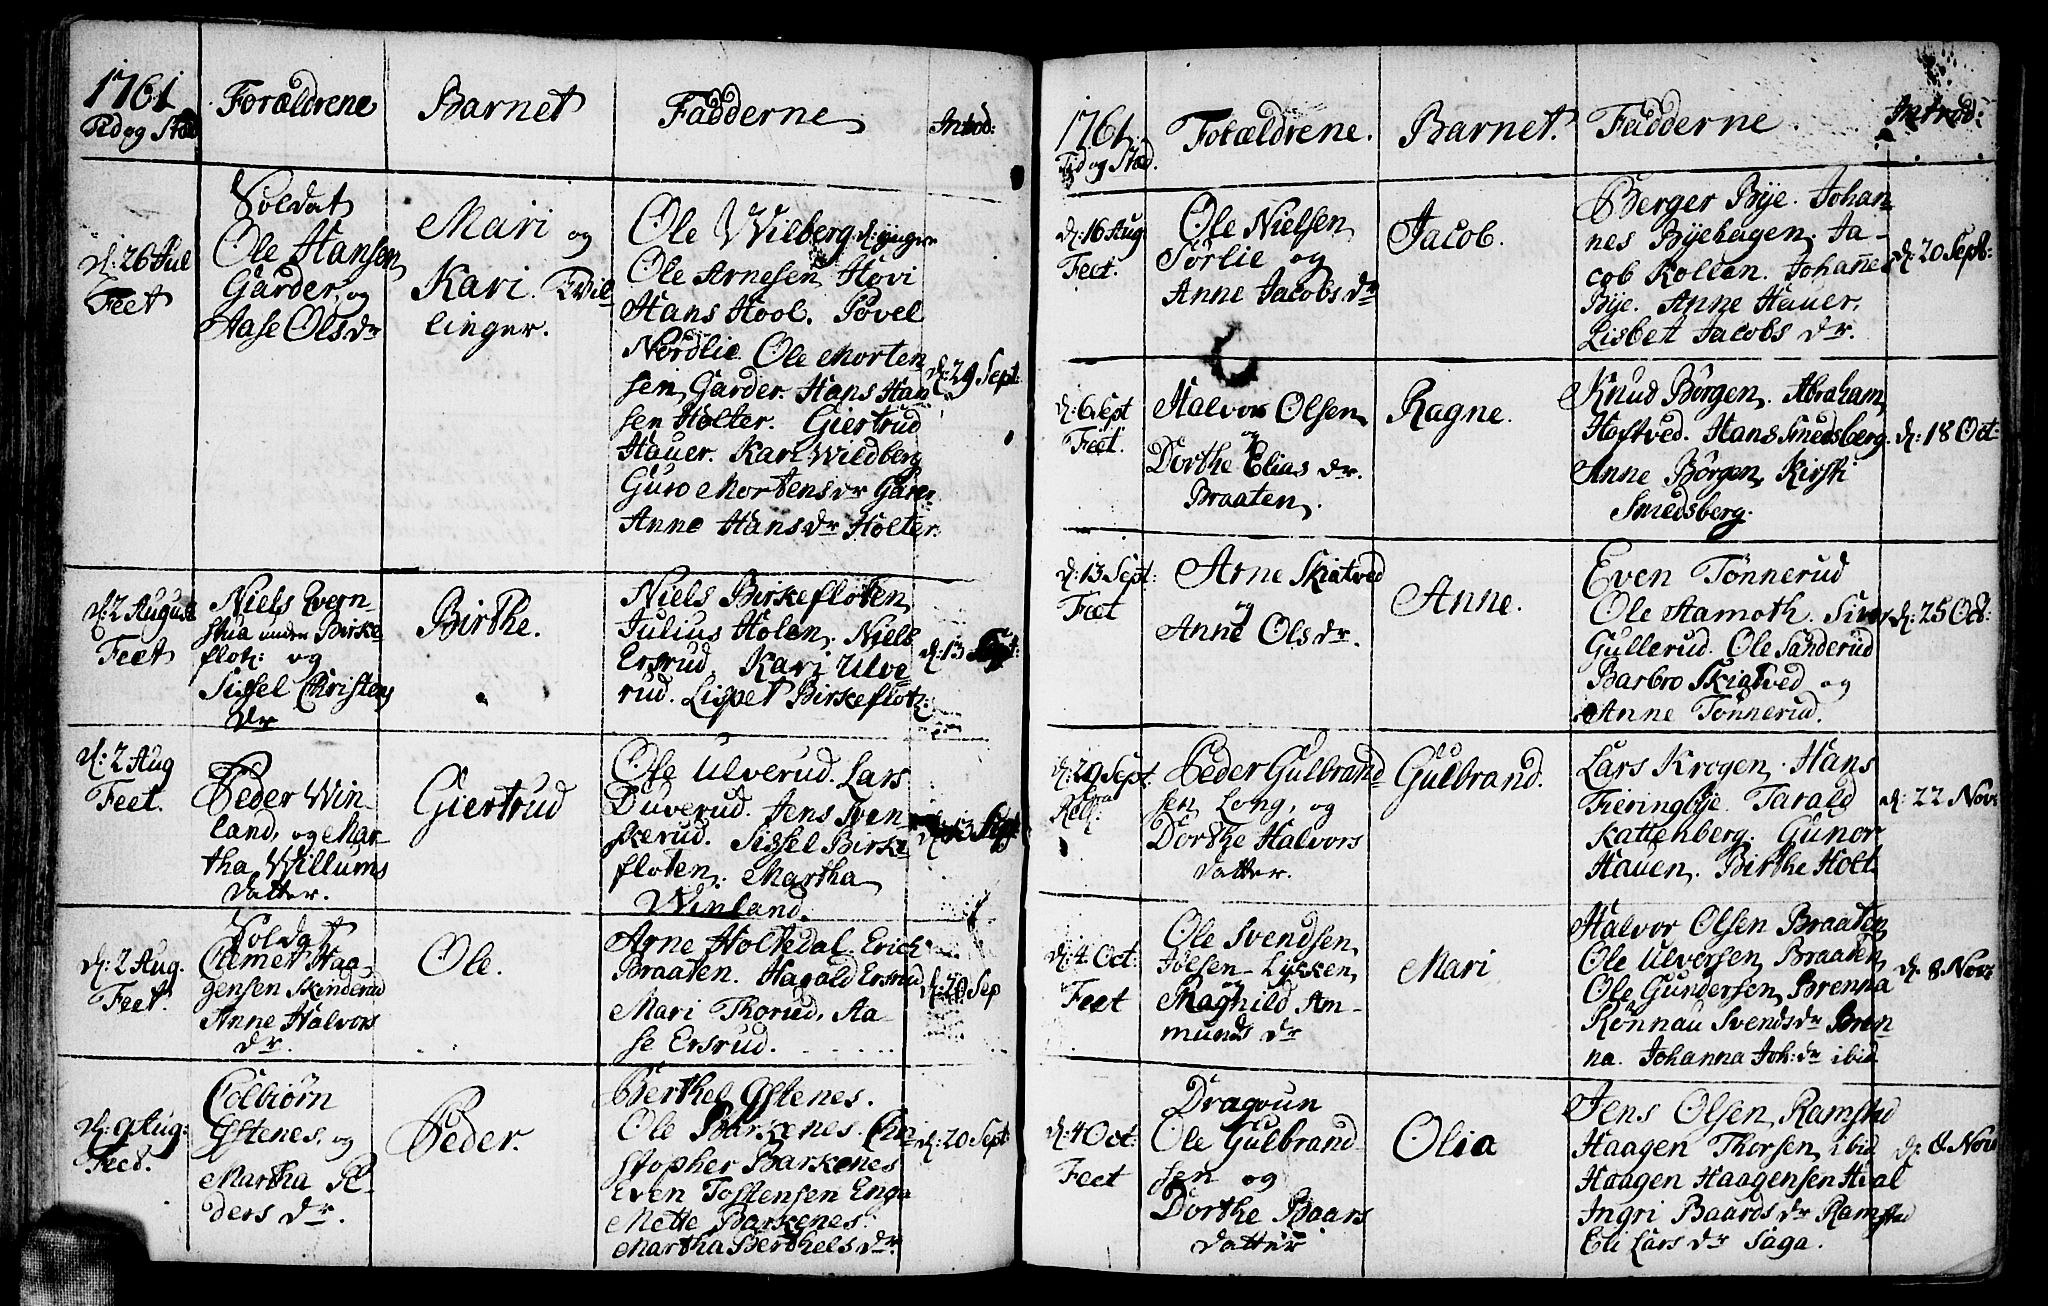 1761
Tid og Stæd
Forældrene
Barnet
Fadderne
Introd:
d: 26 Jul
Feet
Soldat
Ole Hansen
Garder, og
Aase Olsdr
Mari og
Kari. Tvil-
linger.
Ole Wilberg d: yngre
Ole Arnesen Hovi
Hans Hool. Povel
Nordlie. Ole Morten
sen Garder. Hans Han
sen Holter. Giertrud
Hauer. Kari Wildberg
Guro Mortensdr Garer
Anne Hansdr Holter.
d: 29 Sept:
d: 2 August
Feet
Niels Evern-
stua under Birke
flot: og
Sissel Christens
dr
Birthe.
Niels Birkefloten,
Julius Holen. Niels
Ersrud. Kari Ulve
rud. Lispet Birkeflot:
d: 13 Sept:
d: 2 Aug
Feet.
Peder Win-
land, og Mar-
tha Willums
datter.
Giertrud
Ole Ulverud. Lars
Duverud. Jens Sven-
skerud. Sissel Birke-
floten. Martha
Winland.
d: 13 Sept
d: 2 Aug.
Feet.
Soldat
Clemet Haa-
gensen Skinderud
Anne Halvors
dr.
Ole.
Arne Holtedal. Erich
Braaten. Harald Ersrud
Mari Thorud, Aa-
se Ersrud.
d: 20 Sep
d: 9 Aug:
Feet.
Colbiørn
Østenes, og
Martha Pe-
ders dr.
Peder.
Berthel Østenes.
Ole Barkenes. Chri-
stopher Barkenes
Even Tostensen Enga
Mette Barkenes.
Martha Berthelsdr.
d: 20 Sept:
1761.
Tid og Stæd.
Forældrene.
Barnet.
Fadderne.
Introd:
d: 16 Aug
Feet.
Ole Nielsen
Sørlie og
Anne Jacobs dr
Jacob.
Berger Bye. Johan-
nes Byehagen. Ja-
cob Kollen. Johannes
Bye. Anne Hauer,
Lisbet Jacobs dr.
d: 20 Sept:
d: 6 Sept
Feet.
Halvor Olsen
og
Dorthe Elias dr.
Braaten.
Ragne.
Knud Børgen. Abraham
Høftved. Hans Smedsberg.
Anne Børgen, Kirsti
Smedsberg.
d: 18 Oct:
d: 13 Sept:
Feet
Arne Skiatved
og
Anne Olsdr.
Anne.
Even Tønnerud
Ole Hamoth. Siver
Gullerud. Ole Sanderud
Barbro Skiatved og
Anne Tønnerud.
d: 25 Oct:
d: 29 Sept:
Peder Gulbrand
sen Long, og
Dorthe Halvors
datter.
Gulbrand.
Lars Krogen. Hans
Fieringbye. Tarald
Kattenberg. Gunor
Hauen. Birthe Holt
d: 22 Nov:
d: 4 Oct:
Feet
Ole Svendsen
Lykken,
og
Ragnild Am-
munds dr
Mari
Halvor Olsen Braaten
Ole Ulversen Braaten
Ole Gundersen Brenna
Rønnau Svendsdr Bren
na. Johanna Joh: dr ibid
d: 8 Nov:
d: 4 Oct:
Feet
Dragoun
Ole Gulbrand
sen og
Dorthe Baars
datter
Olia
Jens Olsen Ramstad
Haagen Thorsen ibid
Haagen Haagensen Hval
Ingri Baardsdr Ramstad
Eli Lars dr Saga.
d: 8 Nov: